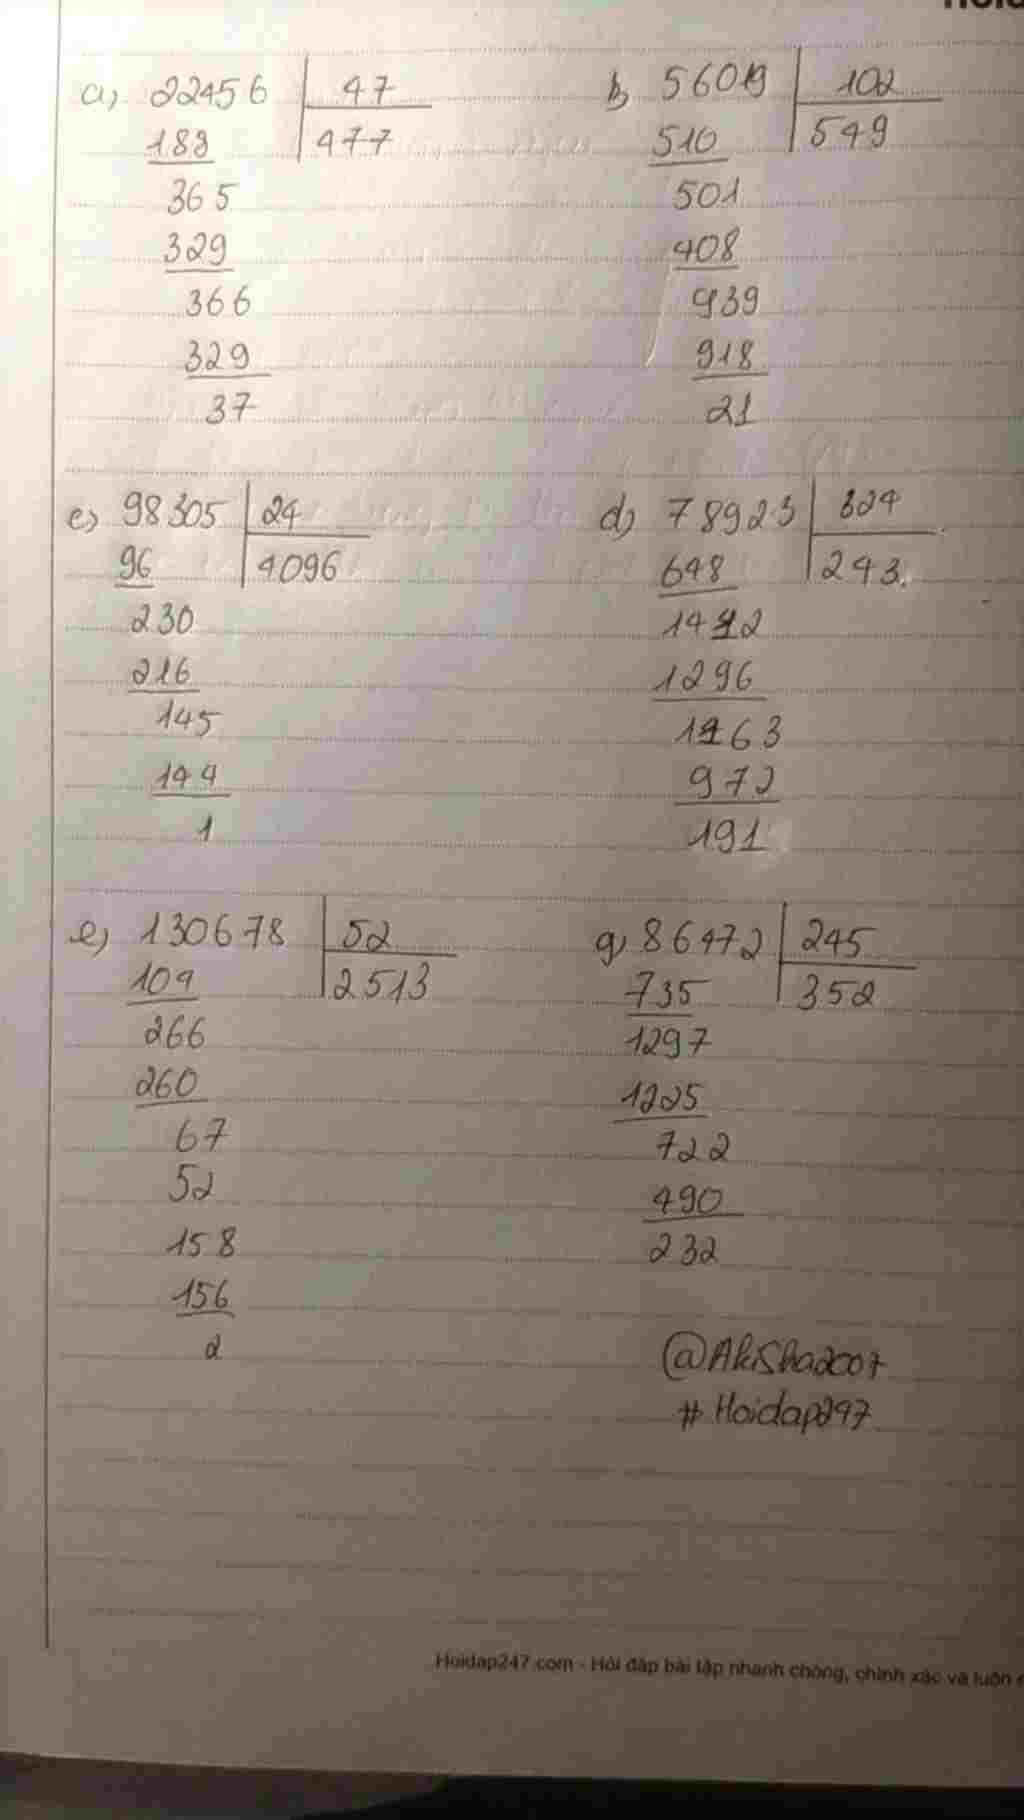 a) 22456 47
188 477
365
329
366
329
37
b) 56019 102
510 549
501
408
939
918
21
c) 98305 24
96 4096
230
216
145
144
1
d) 78923 324
648 243.
1412
1296
1163
972
191
e) 130678 52
104 2513
266
260
67
52
158
156
2
g) 86472 245
735 352
1297
1225
722
490
232
@Akisha2007
# Hoidap247
Hoidap247.com - Hỏi đáp bài tập nhanh chóng, chính xác và luôn